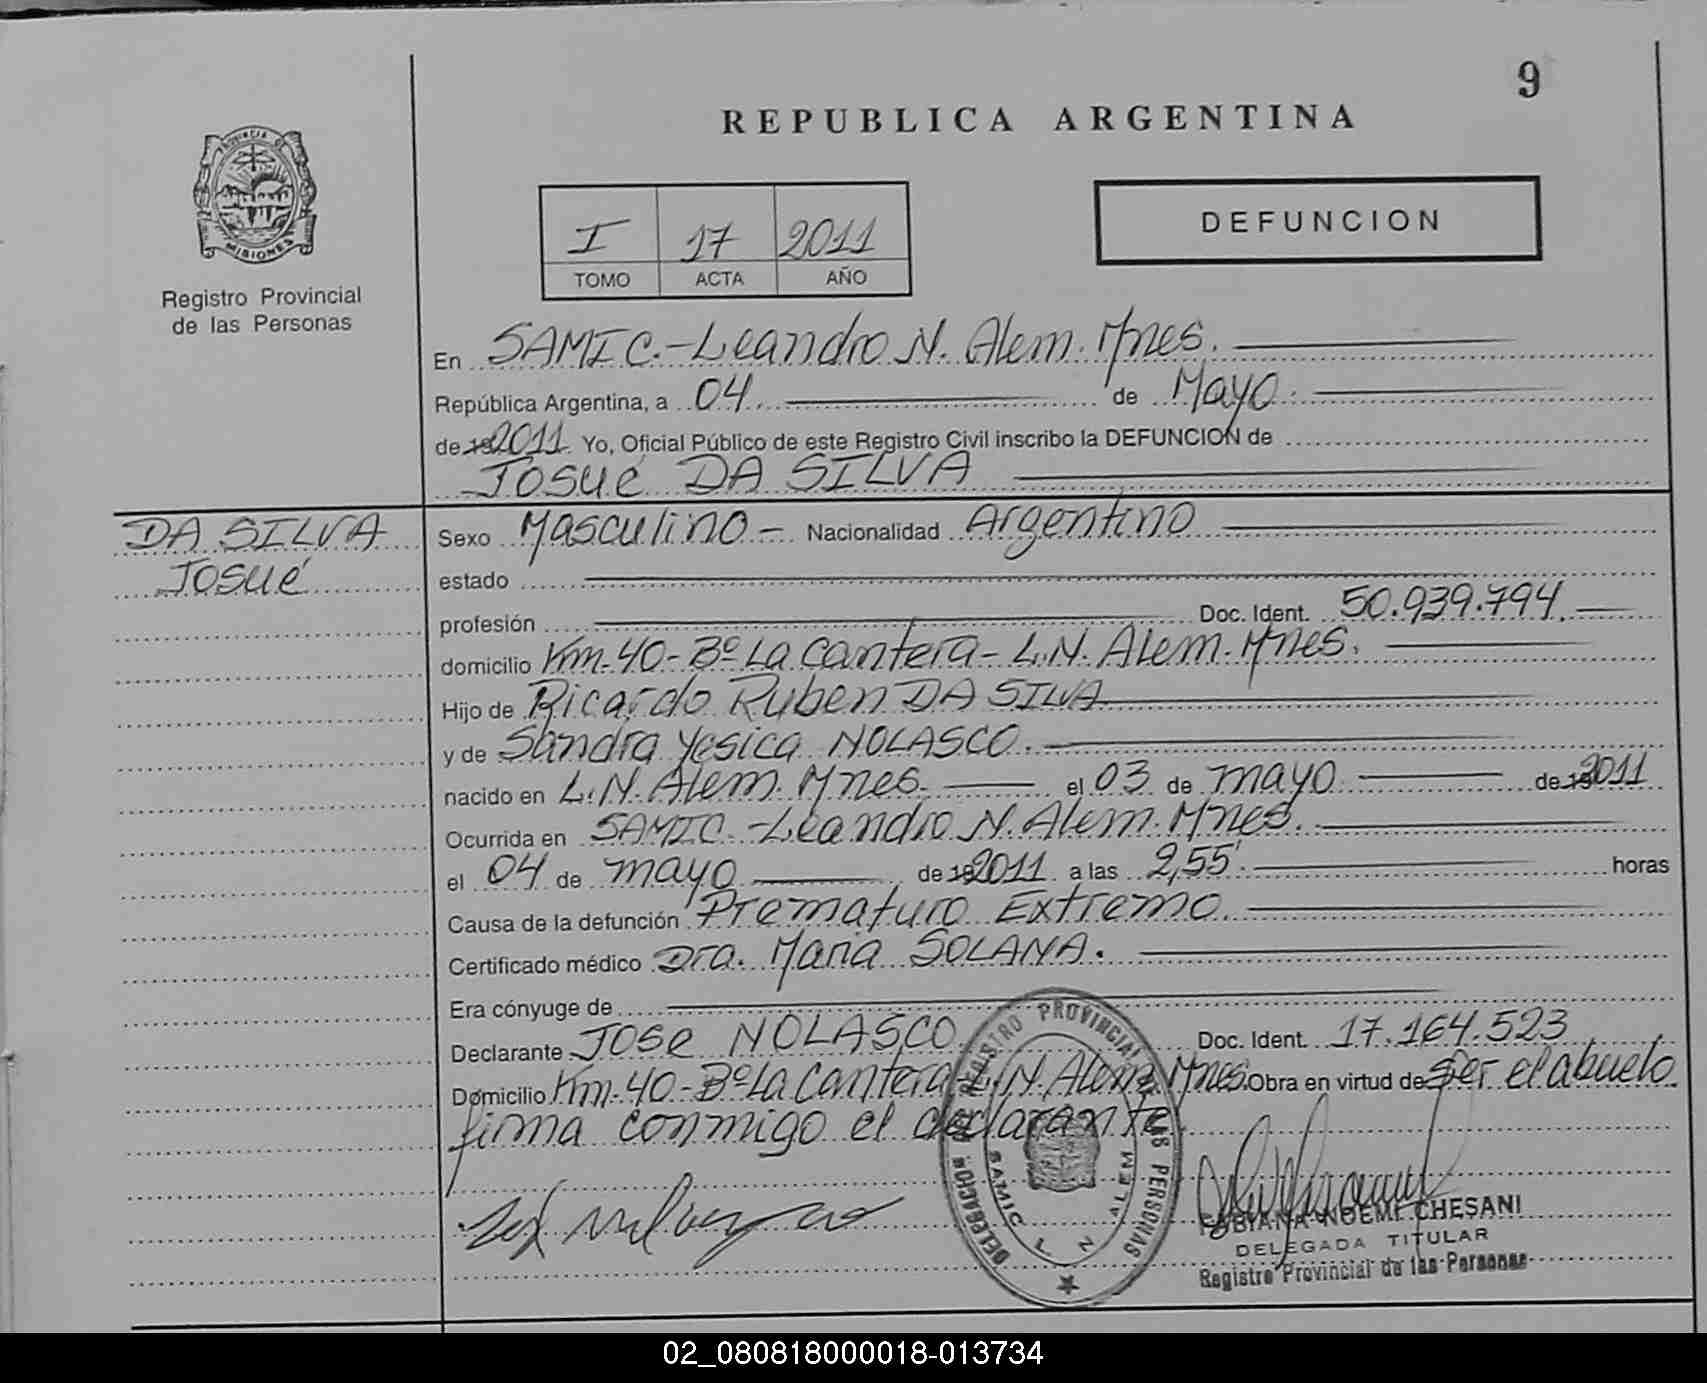 9
REPUBLICA ARGENTINA
PROVINCIA DE
MISIONES
Registro Provincial
de las Personas
I 17 2011
TOMO ACTA AÑO
DEFUNCION
En SAMIC.-Leandro N. Alem. Mnes.
República Argentina, a 04. de Mayo.
de 19 2011. Yo, Oficial Público de este Registro Civil inscribo la DEFUNCION de
Josué DA SILVA
DA SILVA
Josué
Sexo Masculino - Nacionalidad Argentino
estado
profesión Doc. Ident. 50.939.794.
domicilio Km-40-Bº La Cantera-L.N. Alem. Mnes.
Hijo de Ricardo Ruben DA SILVA
y de Sandra Yesica NOLASCO.
nacido en L.N. Alem. Mnes. el 03 de mayo de 19 2011
Ocurrida en SAMIC.-Leandro N. Alem. Mnes.
el 04 de mayo de 19 2011 a las 2,55'. horas
Causa de la defunción Prematuro Extremo.
Certificado médico Dra. Maria SOLANA.
Era cónyuge de
Declarante Jose NOLASCO Doc. Ident. 17.164.523
Domicilio Km-40-Bº La Cantera L.N. Alem Mnes. Obra en virtud de ser el abuelo
firma conmigo el declarante
REGISTRO PROVINCIAL DE LAS PERSONAS
DELEGACION
SAMIC L N ALEM
FABIANA NOEMI CHESANI
DELEGADA TITULAR
Registro Provincial de las Personas
02_080818000018-013734